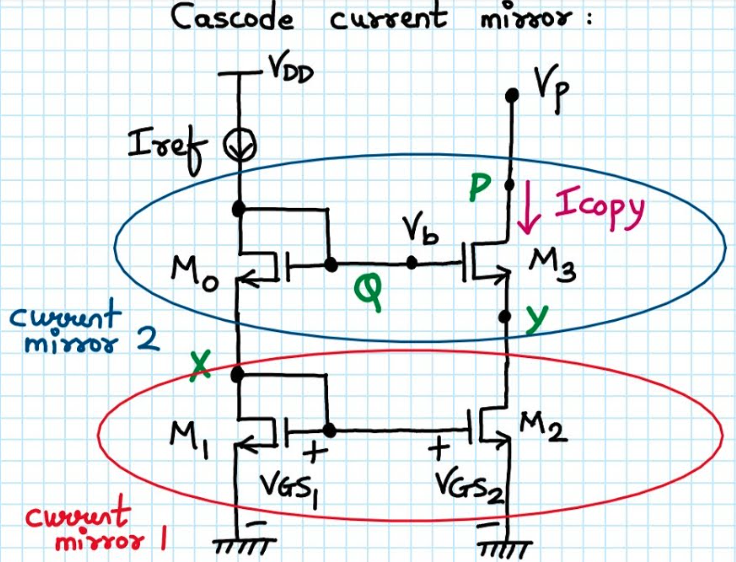 Cascode current mirror :
VDD
Vp
Iref
P
Icopy
Vb
M0
Q
M3
current
mirror 2
Y
X
M1
M2
+
+
VGS1
VGS2
current
mirror 1
-
-